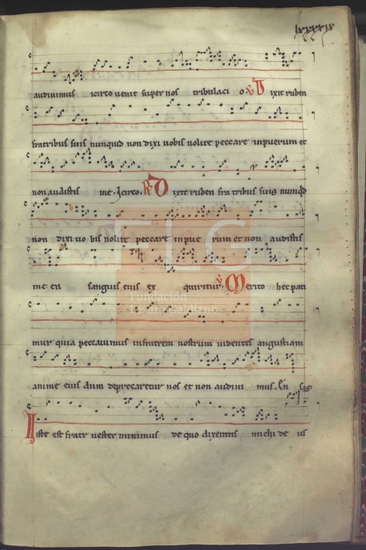 lxxxxix
audivimus icirco venit super nos tribulacio ℣ Dixit ruben
fratribus suis nunquid non dixi vobis nolite peccare inpuerum et
non audistis me. Icirco. ℟ Dixit ruben fratribus suis nunquid
non dixi vobis nolite peccare inpuerum et non audistis
me en sanguis eius exquiritur. ℣ Merito hec pati
mur quia peccavimus infratrem nostrum videntes angustiam
anime eius dum deprecaretur nos et non audivimus. En sag
Iste est frater vester minimus de quo dixeratis michi deus